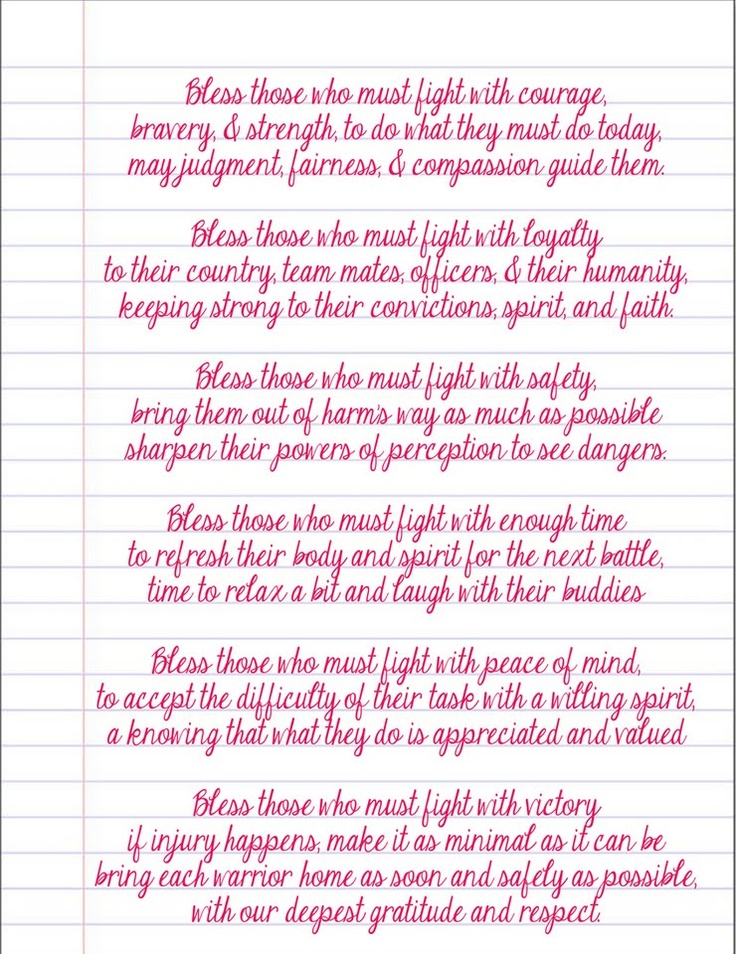 Bless those who must fight with courage,
bravery, & strength, to do what they must do today,
may judgment, fairness, & compassion guide them.
Bless those who must fight with loyalty
to their country, team mates, officers, & their humanity,
keeping strong to their convictions, spirit, and faith.
Bless those who must fight with safety,
bring them out of harm's way as much as possible
sharpen their powers of perception to see dangers.
Bless those who must fight with enough time
to refresh their body and spirit for the next battle,
time to relax a bit and laugh with their buddies
Bless those who must fight with peace of mind,
to accept the difficulty of their task with a willing spirit,
a knowing that what they do is appreciated and valued
Bless those who must fight with victory
if injury happens, make it as minimal as it can be
bring each warrior home as soon and safely as possible,
with our deepest gratitude and respect.